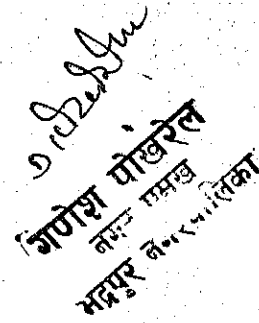 गणेश पोखरेल
नगर प्रमुख
भद्रपुर नगरपालिका